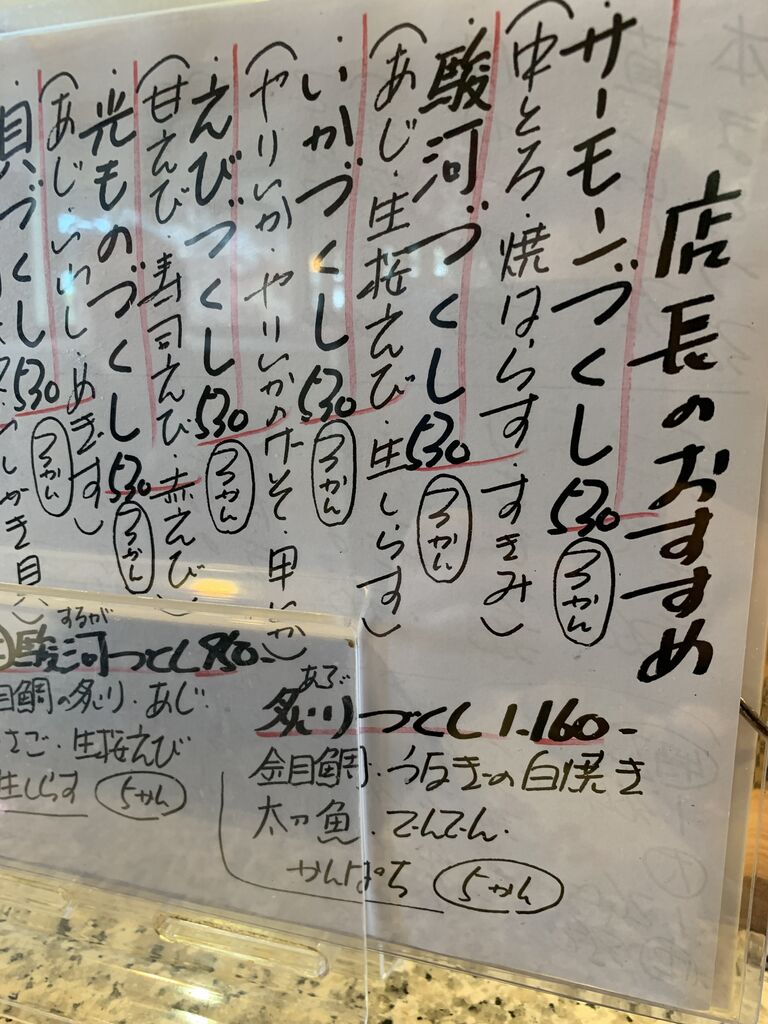 店長のおすすめ
・サーモンづくし 530 3かん
(中とろ・焼はらす・すきみ)
・駿河づくし 530 3かん
(あじ・生桜えび・生しらす)
・いかづくし 530 3かん
(やりいか・やりいかのげそ・甲いか)
・えびづくし 530 3かん
(甘えび・寿司えび・赤えび)
・光ものづくし 530 3かん
(あじ・いわし・めぎす)
貝づくし 530 3かん
あぶ
炙りづくし 1.160-
金目鯛・うなぎの白焼き
太刀魚・でんでん・
かんぱち 5かん
するが
駿河づくし 850-
目鯛の炙り・あじ・
さご・生桜えび
生しらす 5かん